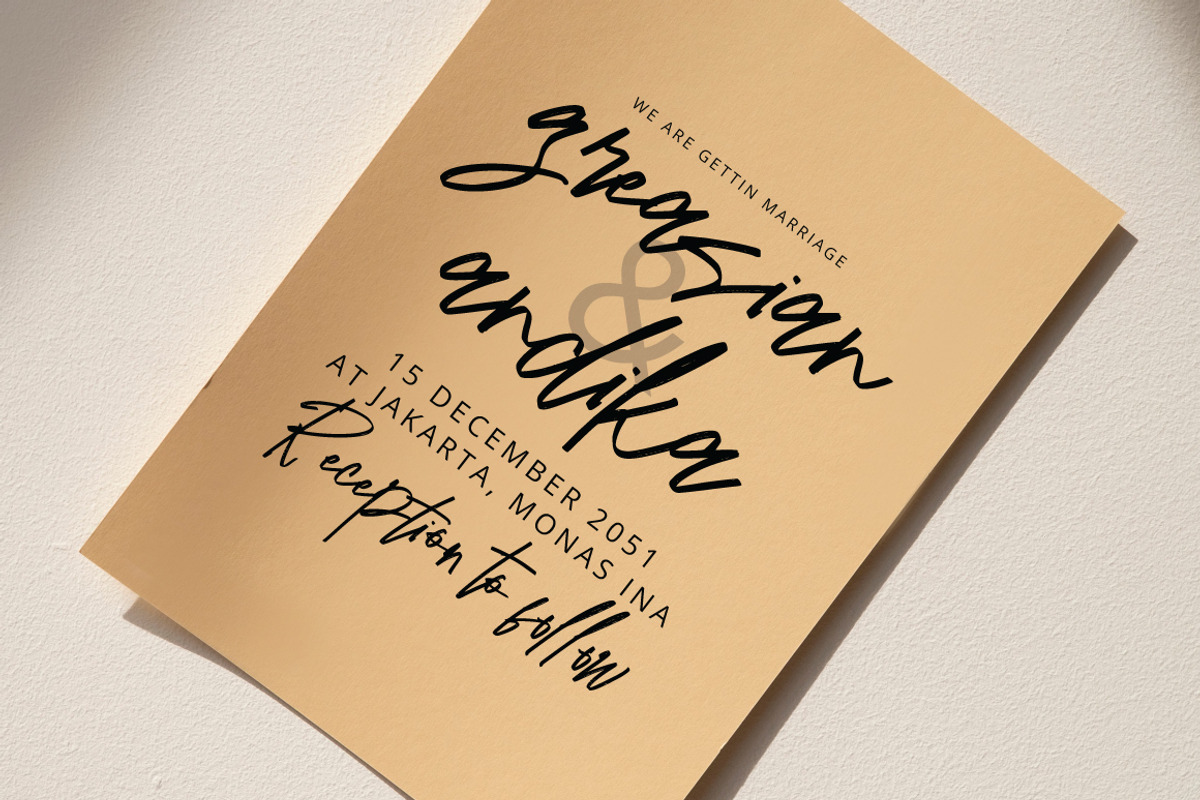 WE ARE GETTIN MARRIAGE
greasian
&
andika
15 DECEMBER 2051
AT JAKARTA, MONAS INA
Reception to follow